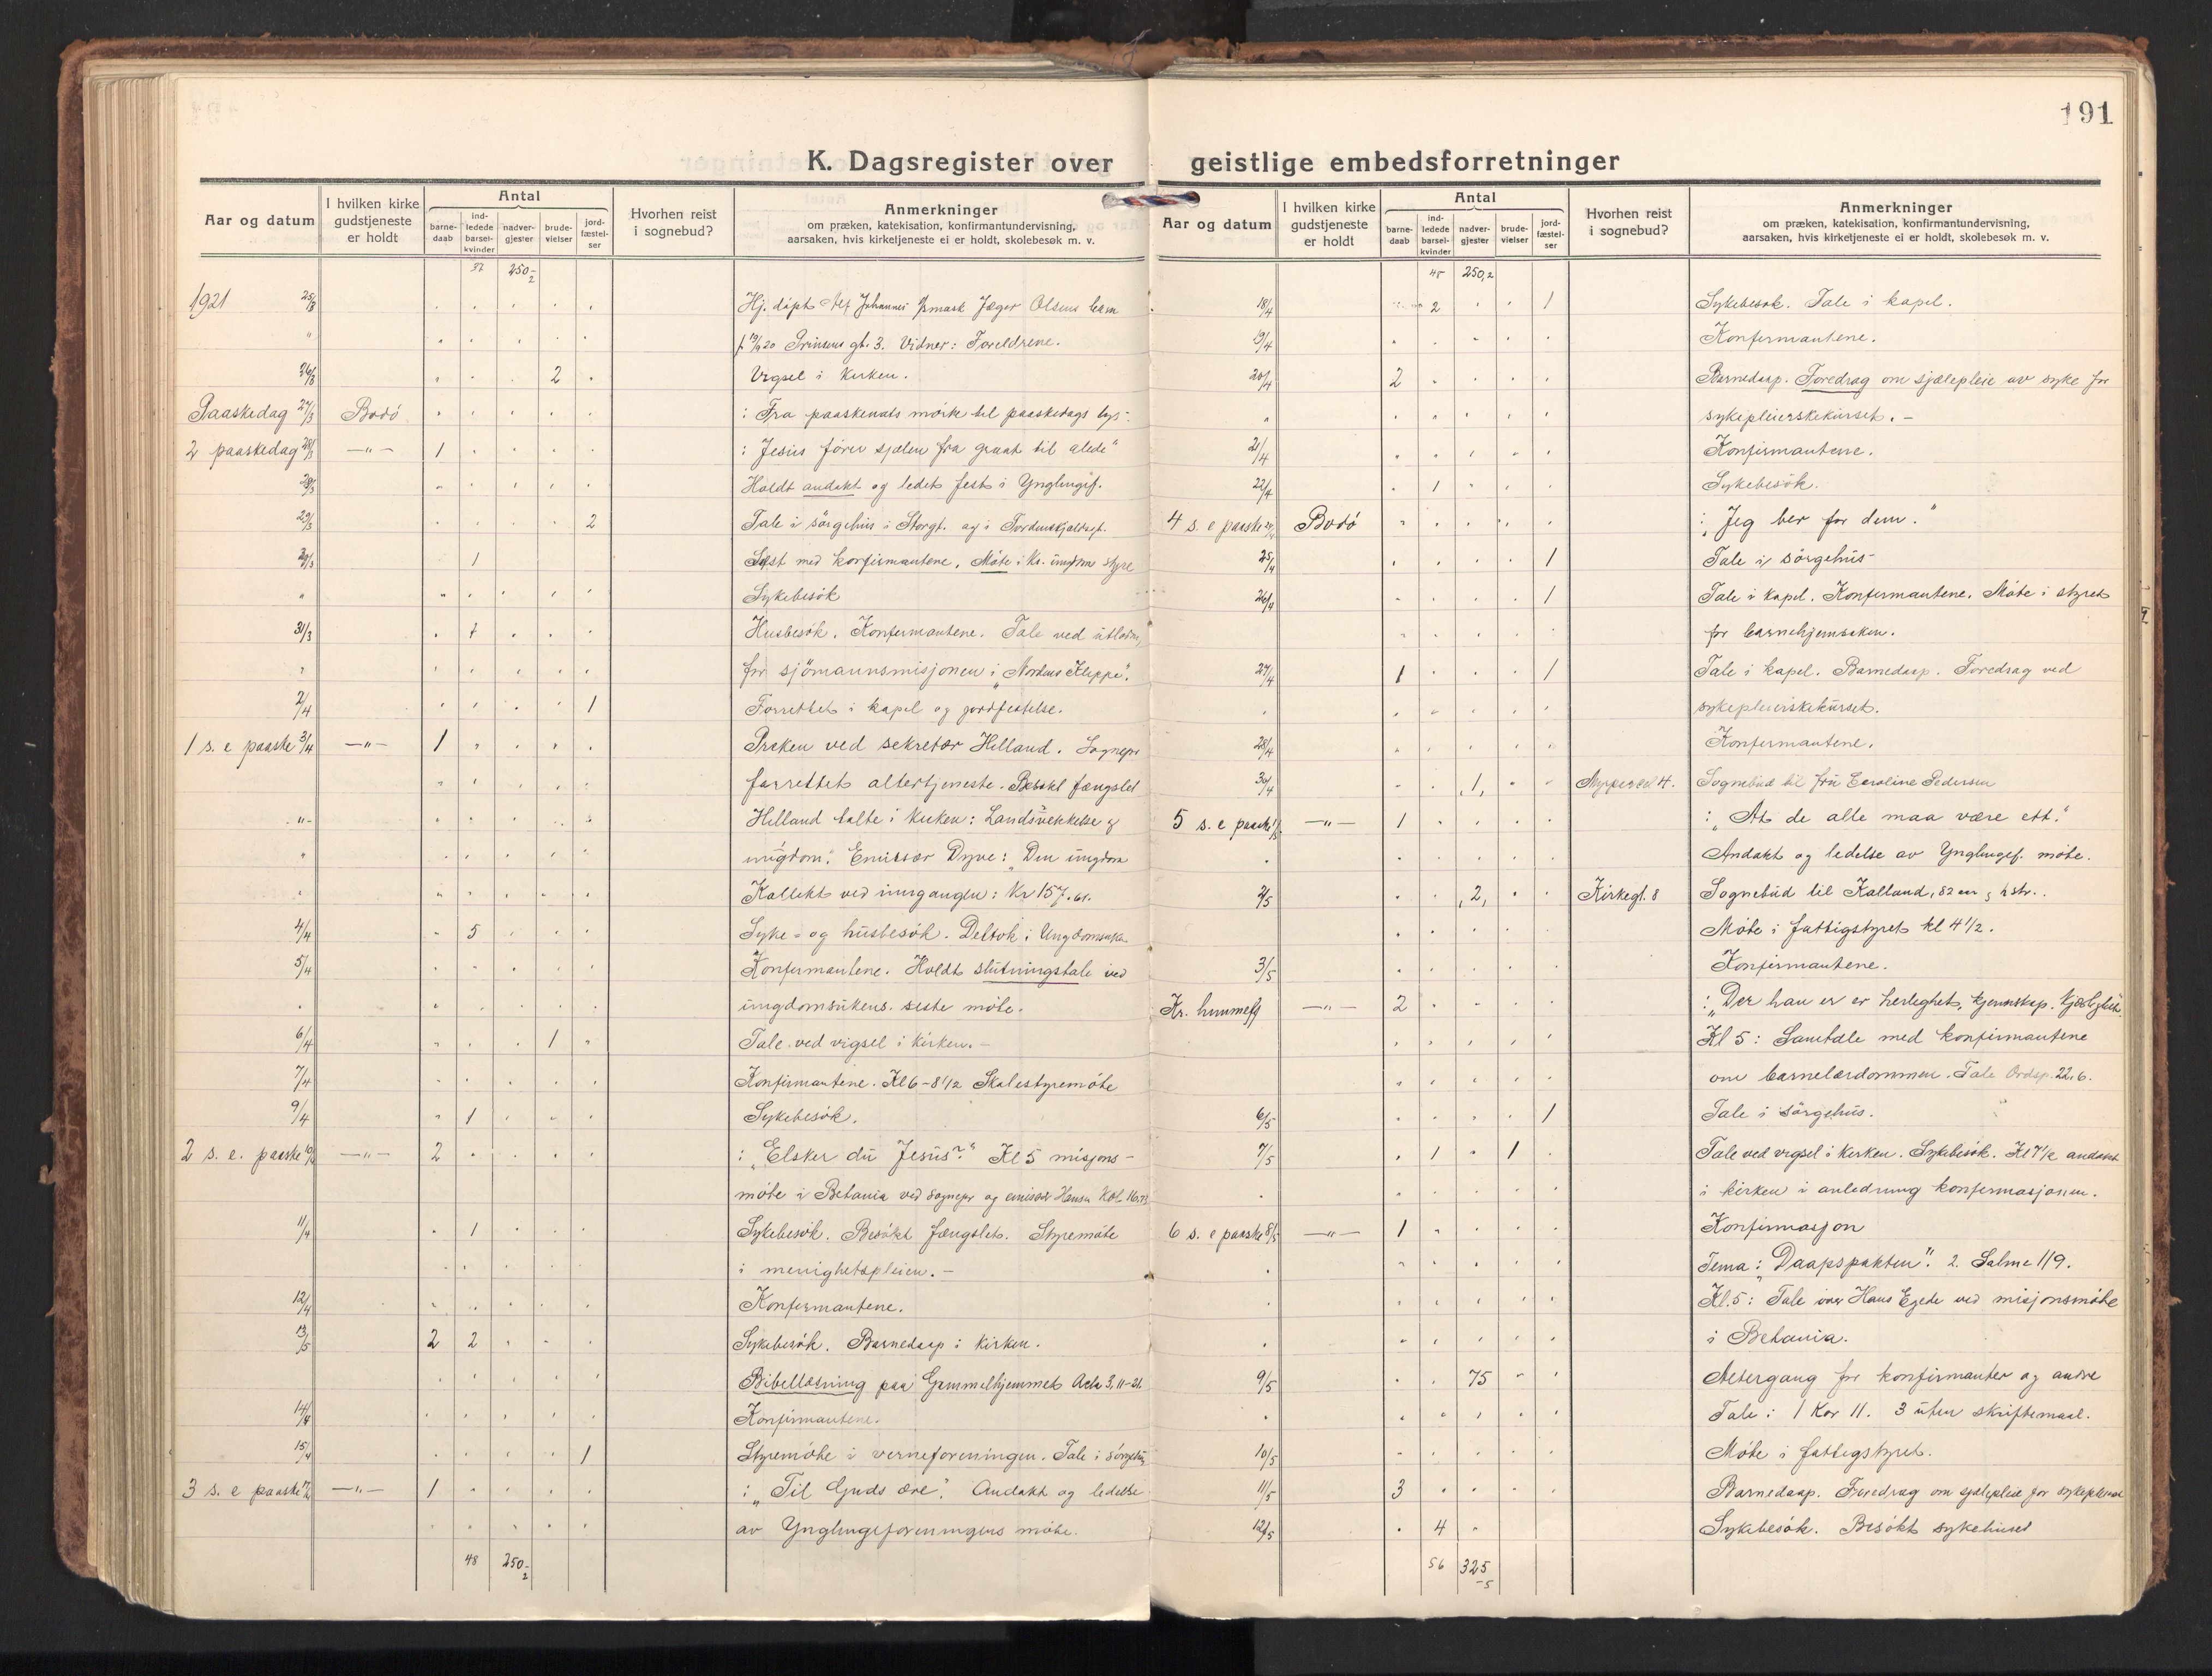 191
K. Dagsregister over geistlige embedsforretninger
Aar og datum
I hvilken kirke gudstjeneste er holdt
Antal
barne-daab
ind-ledede barsel-kvinder
nadver-gjester
brude-vielser
jord-fæstel-ser
Hvorhen reist i sognebud?
Anmerkninger
om præken, katekisation, konfirmantundervisning,
aarsaken, hvis kirketjeneste ei er holdt, skolebesøk m. v.
250-2
1921 25/3 Hj. døpt Alf Johannes Jæger Olsens barn
" Prinsens gt. 3. Vidner: Foreldrene.
26/3 2 Vigsel i kirken.
Paaskedag 27/3 Bodö : Fra paaskenats mörk til paaskedags lys.
2 paaskedag 28/3 —"— 1 : Jesus förer sjælen fra graat til glede"
28/3 Holdt andakt og ledet fest i Ynglingef.
29/3 2 Tale i sörgehus i Storgt. og i Tordenskjoldsgt.
1 med konfirmantene. Möte i Kr. ungdoms styre
" Sykebesök
31/3 7 Husbesök. Konfirmantene. Tale ved
" for sjömannsmisjonen i „Nordens Klippe".
2/4 1 Forrettet i kapel og jordfestelse.
1 s. e paaske 3/4 —"— 1 Preken ved sekretær Hilland. Sognepr
forrettet altertjeneste. Besökt fængslet
" Hilland talte i kirken: Landsvekkelse og
" ungdom. Emissær Dyve: „Den ungdom
" Kollekt ved inngangen: Kr 157.61.
4/4 5 Syke- og husbesök. Deltok i Ungdomsuka
5/4 Konfirmantene. Holdt slutningstale ved
ungdomsukens siste möte.
6/4 1 Tale ved vigsel i kirken.-
7/4 Konfirmantene. Kl 6-8 1/2 Skolestyremöte
9/4 1 Sykebesök.
2 s. e. paaske 10/4 —"— 2 : „Elsker du Jesus?" Kl 5 misjons-
möte i Betania ved sognepr og emissær Hansen
11/4 1 Sykebesök. Besökt fængslet. Styremöte
i menighetspleien.-
12/4 Konfirmantene.
13/5 2 2 Sykebesök. Barnedaap i kirken.
Bibellæsning paa Gammelhjemmet Acta 3, 11-21.
14/4 Konfirmantene.
15/4 1 Styremöte i verneforeningen. Tale i sörgehus
3 s. e paaske 17/4 —"— 1 : „Til Guds ære". Andakt og ledelse
av Ynglingeforeningens möte.
48 250-2
Aar og datum
I hvilken kirke gudstjeneste er holdt
Antal
barne-daab
ind-ledede barsel-kvinder
nadver-gjester
brude-vielser
jord-fæstel-ser
Hvorhen reist i sognebud?
Anmerkninger
om præken, katekisation, konfirmantundervisning,
aarsaken, hvis kirketjeneste ei er holdt, skolebesøk m. v.
250,2
18/4 2 1 Sykebesök. Tale i kapel.
19/4 Konfirmantene.
20/4 2 Barnedaap. Foredrag om sjælepleie av syke for
" sykepleierskekurset.-
21/4 Konfirmantene.
22/4 1 Sykebesök.
4 s. e paaske 24/4 Bodö : „Jeg ber for dem."
25/4 1 Tale i sörgehus
26/4 1 Tale i kapel. Konfirmantene. Möte i styret
for barnehjemsaken.
27/4 1 1 Tale i kapel. Barnedaap. Foredrag ved
sykepleierskekurset.
28/4 Konfirmantene.
30/4 1 Sognebud til fru Caroline Pedersen
5 s. e paaske 1/5 —"— 1 : „At de alle maa være ett."
Andakt og ledelse av Ynglingef. möte.
2/5 2 Kirkegt. 8 Sognebud til Kalland, 82 aar
Möte i fattigstyret kl 4 1/2.
3/5 Konfirmantene.
Kr. himmelf —"— 2 : „Der han er er herlighet, kjennskap,
Kl 5: Samtale med konfirmantene
om barnelærdommen. Tale Ordsp. 22.6.
6/5 1 Tale i sörgehus.
7/5 1 1 Tale ved vigsel i kirken. Sykebesök. Kl 7 1/2 andakt
i kirken i anledning konfirmasjonen.
6 s. e paaske 8/5 —"— 1 Konfirmasjon
Tema: „Daapspakten". 2. Salme 119.
Kl. 5: Tale over Hans Egede ved misjonsmöte
i Betania.
9/5 75 Altergang for konfirmanter og andre
Tale: 1 Kor 11. 3 uten skriftemaal.
10/5 Möte i fattigstyret.
11/5 3 Barnedaap. Foredrag om sjælepleie for
12/5 4 Sykebesök. Besökt sykehuset
56 325-5